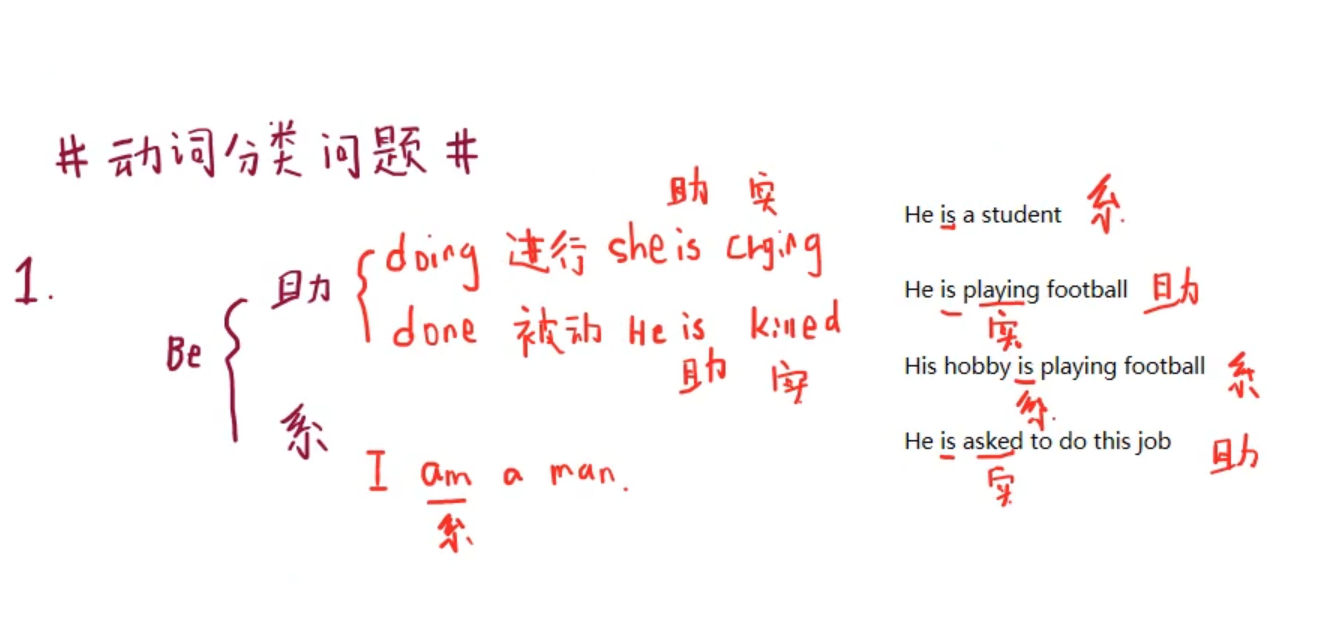 #动词分类问题#
助 实
1. Be 助 doing 进行 she is crying
done 被动 He is killed
助 实
系
I am a man.
系
He is a student 系
He is playing football 助
实
His hobby is playing football 系
系
He is asked to do this job 助
实